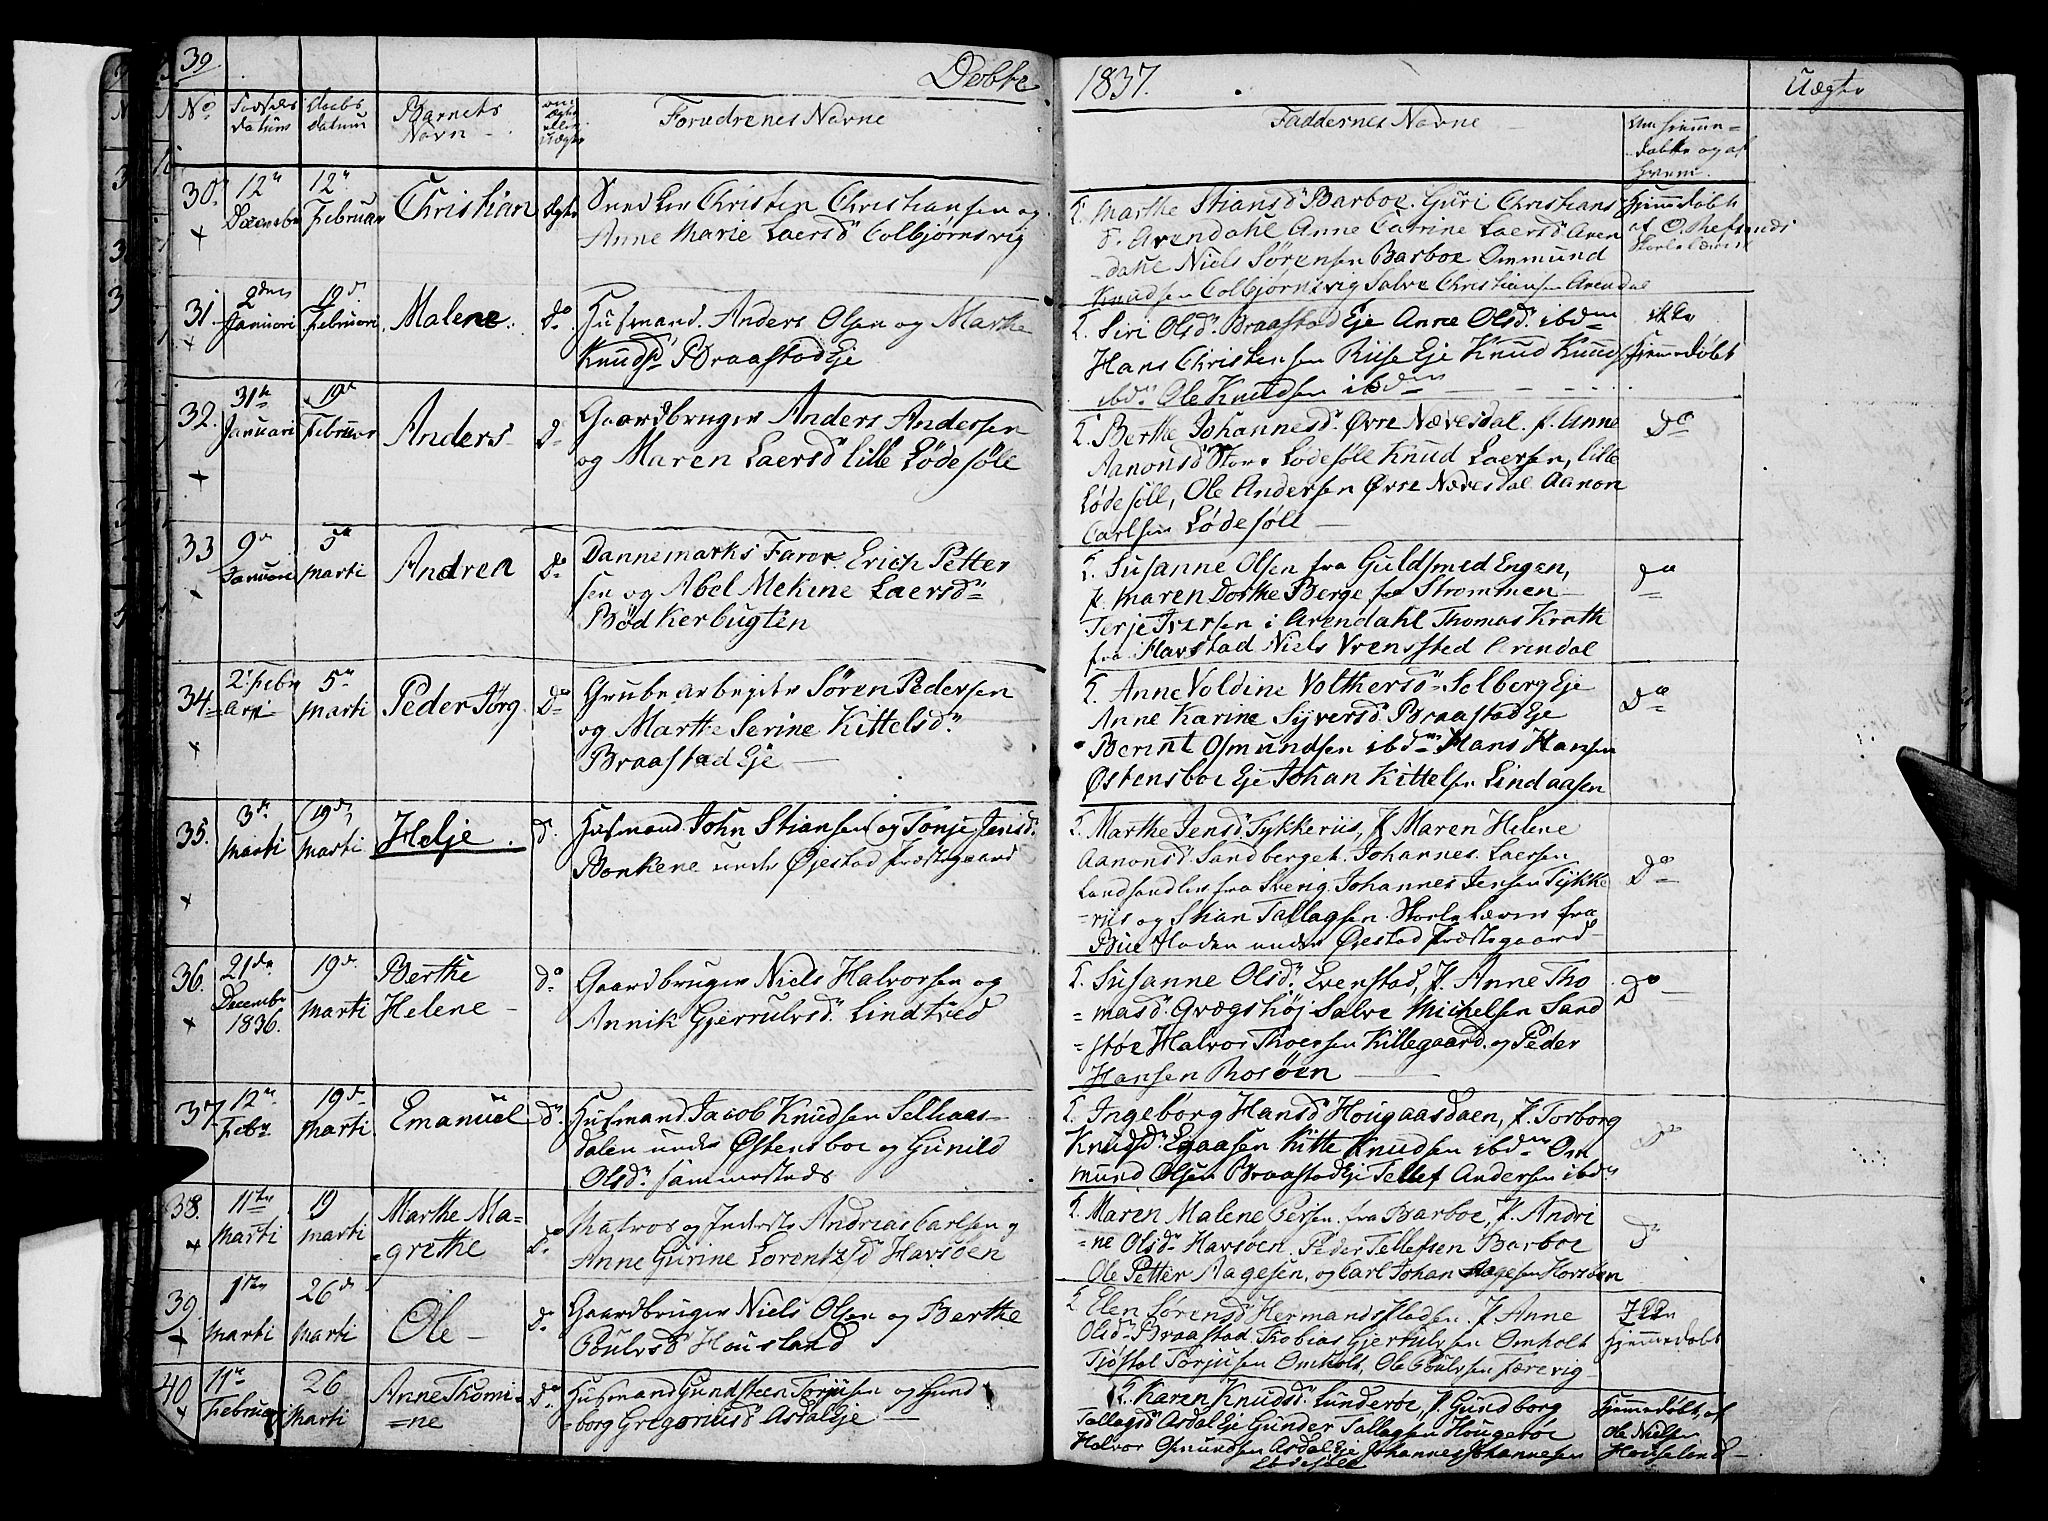 39
Døbte
1837.
Uægte
No
Fødsels
Datum
Daabs
Datum
Barnets
Navn
om
Ægte
eller
Uægte
Foreldrenes Navne
Faddernes Navne
Om hjemme=
døbte og af
hvem.
30.
12te
Decembr
12te
Februar
Christian
Ægte
Christen Christiansen og
Anne Marie Laersd Colbjørnsvig
Marthe Stiansd Barboe. Guri Christians
d. Arendahl Anne Catrine Laersd Aren
dahl Niels Sørensen Barboe Ommund
Knudsen Colbjørnsvig Salve Christiansen Arendal
Hjemmedøbt
af O. Refsnæs
Skolelærer
31.
2den
Januari
19d.
Februari
Malene.
Do
Husmand. Anders Olsen og Marthe
Knudsd Braastad Eje
Siri Olsd. Braastad Eje Anne Olsd. ibdm
Hans Christensen Riise Eje Knud Knuds
ibd. Ole Knudsen ibdm
ikke
Hjemmedøbt
32.
31te
Januari
19d
Februar
Anders
Do
Gaardbruger Anders Andersen
og Maren Laersd Lille Lødesøll
Berthe Johannesd. Øvre Nævesdal. J. Anne
Aanonsd Store Lødesøll Knud Laersen, Lille
Lødesøll, Ole Andersen Øvre Nævesdal Aanon
Carlsen Lødesøll
Do
33
9d
Januari
5te
Marti
Andrea
Do
Dannemarks Farer. Erich Petter
sen og Abel Mekine Laersd
Bødkerbugten
Susanne Olsen fra Guldsmed Engen,
J. Maren Dorthe Berge fra Strømmen
Terje Iversen i Arendahl Thomas Krath
fra Harstad Niels Vrensted Arendal
Do
34
2 Febr
ari
5te
Marti
Peder Jørg.
Do
Grubearbejder Søren Pedersen
og Marthe Serine Kittelsd.
Braastad Eje
Anne Voldine Volthersd. Solberg Eje
Anne Karine Syversd. Braastad Eje
Bernt Osmundsen ibdm Hans Hansen
Østensboe Eje Johan Kittelsen Lindaasen
Do
35.
3d
Marti
19d
Marti
Helje.
D.
Husmand John Stiansen og Tonje Jensd.
Bonkene under Øjestad Præstegaard
Marthe Jensd. Tykkeriis, J. Maren Helene
Aanonsd. Sandberget. Johannes Laersen
Landhandler fra Sverig. Johannes Jensen Tykke
=riis og Stian Tallagsen Skolelærer fra
Bue Haden under Øiestad Præstegaard
Do
36.
21de
Decembr
1836.
19d.
Marti
Berthe
Helene
Do
Gaardbruger Niels Halvorsen og
Annik Gjerrulvsd. Lindtved
Susanne Olsd. Evenstad, J. Anne Tho
=masd. Grægshøj Salve Michelsen Sand
=støe Halvor Thorsen Killegaard. og Peder
Hansen Rosøen
Do
37
12te
Febr
19d.
Marti
Emanuel
Do.
Husmand Jacob Knudsen Selhaas-
dalen under Østensboe og Gunild
Olsd. sammesteds
Ingeborg Hansd Hougaasdaen, J. Torborg
Knudsd. Egaasen Kitte Knudsen ibdm Om
mund Olsen Braastad Eje Tellef Andersen ibd.
Do
38.
11te
Marti
19
Marti
Marthe Ma=
=grethe
Do
Matros og Inderste Andreas Carlsen og
Anne Gurine Lorentzsd Havsøen
Maren Malene Persen. fra Barboe, J. Andri
=ne Olsd. Havsøen. Peder Tellefsen Barboe
Ole Petter Aagesen, og Carl Johan Aagesen Havsøen
Do
39.
1ste
Marti
26d
Marti
Ole
Do
Gaardbruger Niels Olsen og Berthe
Poulsd Housland
Elen Sørensd Hermandsfladen. J. Anne
Olsd. Braastad. Tobias Gjerrulvsen Omholt
Tjøstal Torjusen Omholt, Ole Poulssen Færevig
Hjemmedøbt
40
11te
Februari
26
Marti
Anne Thomi-
=ne
Do
Husmand Gundsteen Torjusen og Gund
=borg Gregoriusd. Asdal Eje
Karen Knudsd. Lunderøe, J. Gundborg
Tallagsd Asdal Eje Gunder Tallagsen Hougeboe
Halvor Osmundsen Asdal Eje Johannes Johannesen
Lødesøll
Hjemmedøbt, af
Ole Nielsen
Houseland